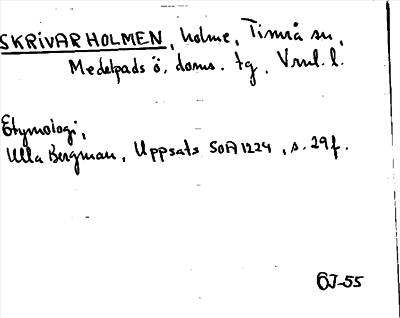 SKRIVARHOLMEN, holme, Timrå sn,
Medelpads ö. doms. tg, Vrml. l.
Etymologi,
Ulla Bergman, Uppsats SOA 1224, s. 29f.
GJ-55